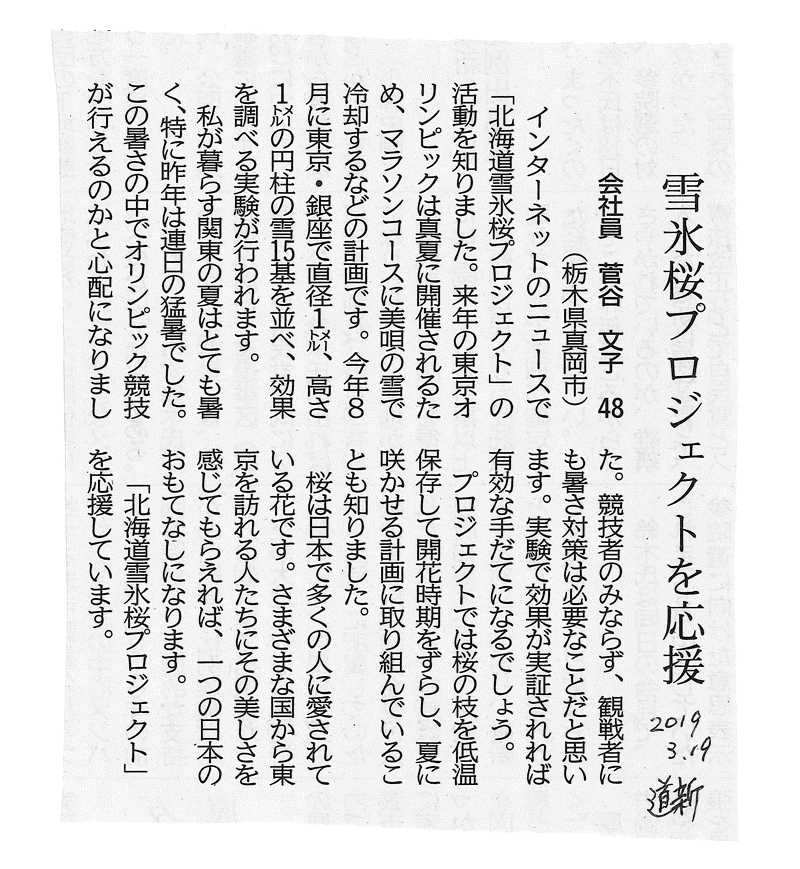 雪氷桜プロジェクトを応援
2019
3.19
道新
会社員 菅谷 文子 48
（栃木県真岡市）
インターネットのニュースで
「北海道雪氷桜プロジェクト」の
活動を知りました。来年の東京オ
リンピックは真夏に開催されるた
め、マラソンコースに美唄の雪で
冷却するなどの計画です。今年８
月に東京・銀座で直径１㍍、高さ
１㍍の円柱の雪15基を並べ、効果
を調べる実験が行われます。
私が暮らす関東の夏はとても暑
く、特に昨年は連日の猛暑でした。
この暑さの中でオリンピック競技
が行えるのかと心配になりまし
た。競技者のみならず、観戦者に
も暑さ対策は必要なことだと思い
ます。実験で効果が実証されれば
有効な手だてになるでしょう。
プロジェクトでは桜の枝を低温
保存して開花時期をずらし、夏に
咲かせる計画に取り組んでいるこ
とも知りました。
桜は日本で多くの人に愛されて
いる花です。さまざまな国から東
京を訪れる人たちにその美しさを
感じてもらえれば、一つの日本の
おもてなしになります。
「北海道雪氷桜プロジェクト」
を応援しています。